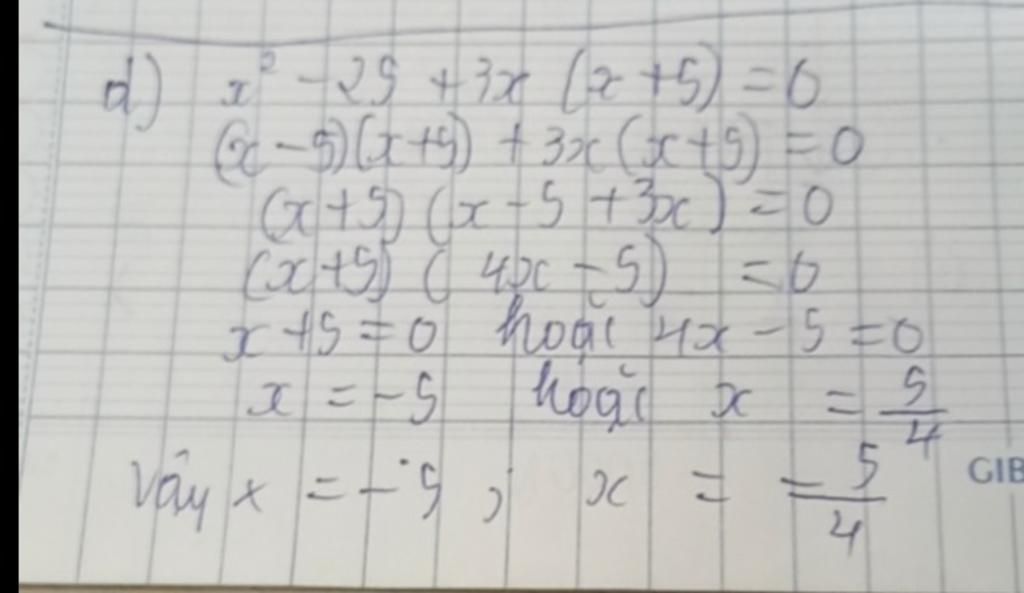 d) x² - 25 + 3x (x + 5) = 0
(x - 5)(x + 5) + 3x (x + 5) = 0
(x + 5) (x - 5 + 3x) = 0
(x + 5) ( 4x - 5) = 0
x + 5 = 0 hoặc 4x - 5 = 0
x = -5 hoặc x = 5/4
Vậy x = -5 ; x = -5/4
GIB